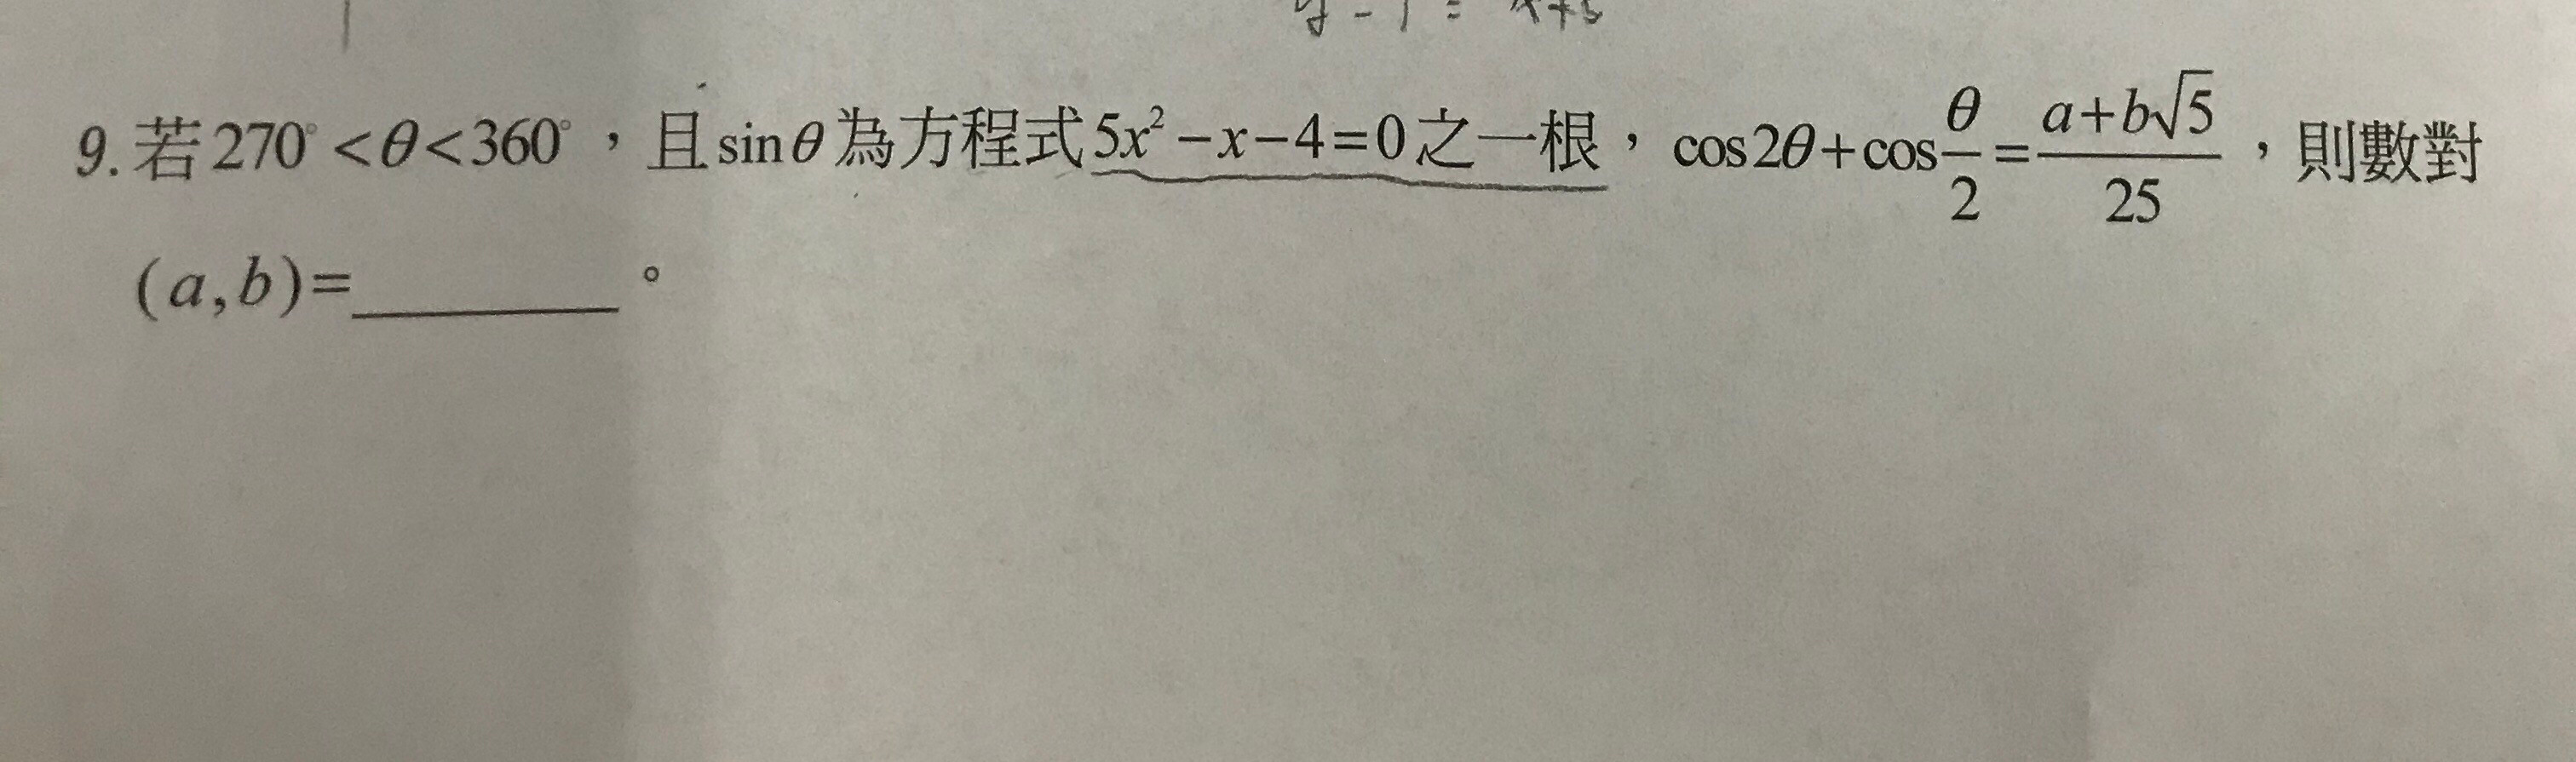 y - 1 =
9. 若270°<θ<360°，且sinθ為方程式5x²−x−4=0之一根，cos2θ+cos θ/2 = (a+b√5)/25，則數對
(a,b)=______。